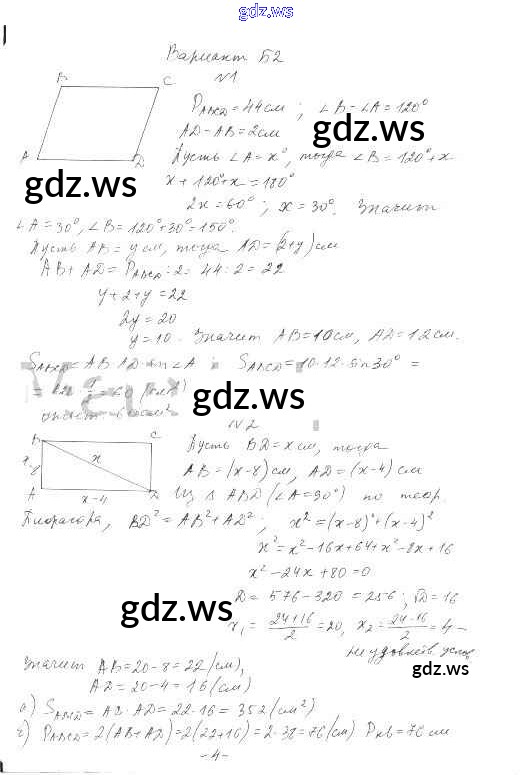 gdz.ws
Вариант Б2
N1
B C
A D
P_ABCD = 44 см ; ∠B - ∠A = 120°
AD - AB = 2 см
gdz.ws
Пусть ∠A = x°, тогда ∠B = 120° + x
gdz.ws
x + 120° + x = 180°
2x = 60° ; x = 30°. Значит
∠A = 30°, ∠B = 120° + 30° = 150°.
Пусть AB = y см, тогда AD = (2+y) см
AB + AD = P_ABCD : 2 = 44 : 2 = 22
y + 2 + y = 22
2y = 20
y = 10. Значит AB = 10 см, AD = 12 см.
S_ABCD = AB · AD · sin∠A ; S_ABCD = 10 · 12 · sin 30° =
gdz.ws
N2
B C
x
A x-4 D
Пусть BD = x см, тогда
AB = (x-8) см, AD = (x-4) см
Из Δ ABD (∠A = 90°) по теор.
Пифагора, BD² = AB² + AD² ; x² = (x-8)² + (x-4)²
x² = x² - 16x + 64 + x² - 8x + 16
x² - 24x + 80 = 0
gdz.ws
D = 576 - 320 = 256 ; √D = 16
x₁ = 24+16/2 = 20, x₂ = 24-16/2 = 4 -
не удовлетв. услов.
gdz.ws
Значит AB = 20 - 8 = 22 (см),
AD = 20 - 4 = 16 (см)
а) S_ABCD = AB · AD = 22 · 16 = 352 (см²)
P_ABCD = 2(AB + AD) = 2(22+16) = 2 · 38 = 76 (см) P_кв = 76 см
- 4 -